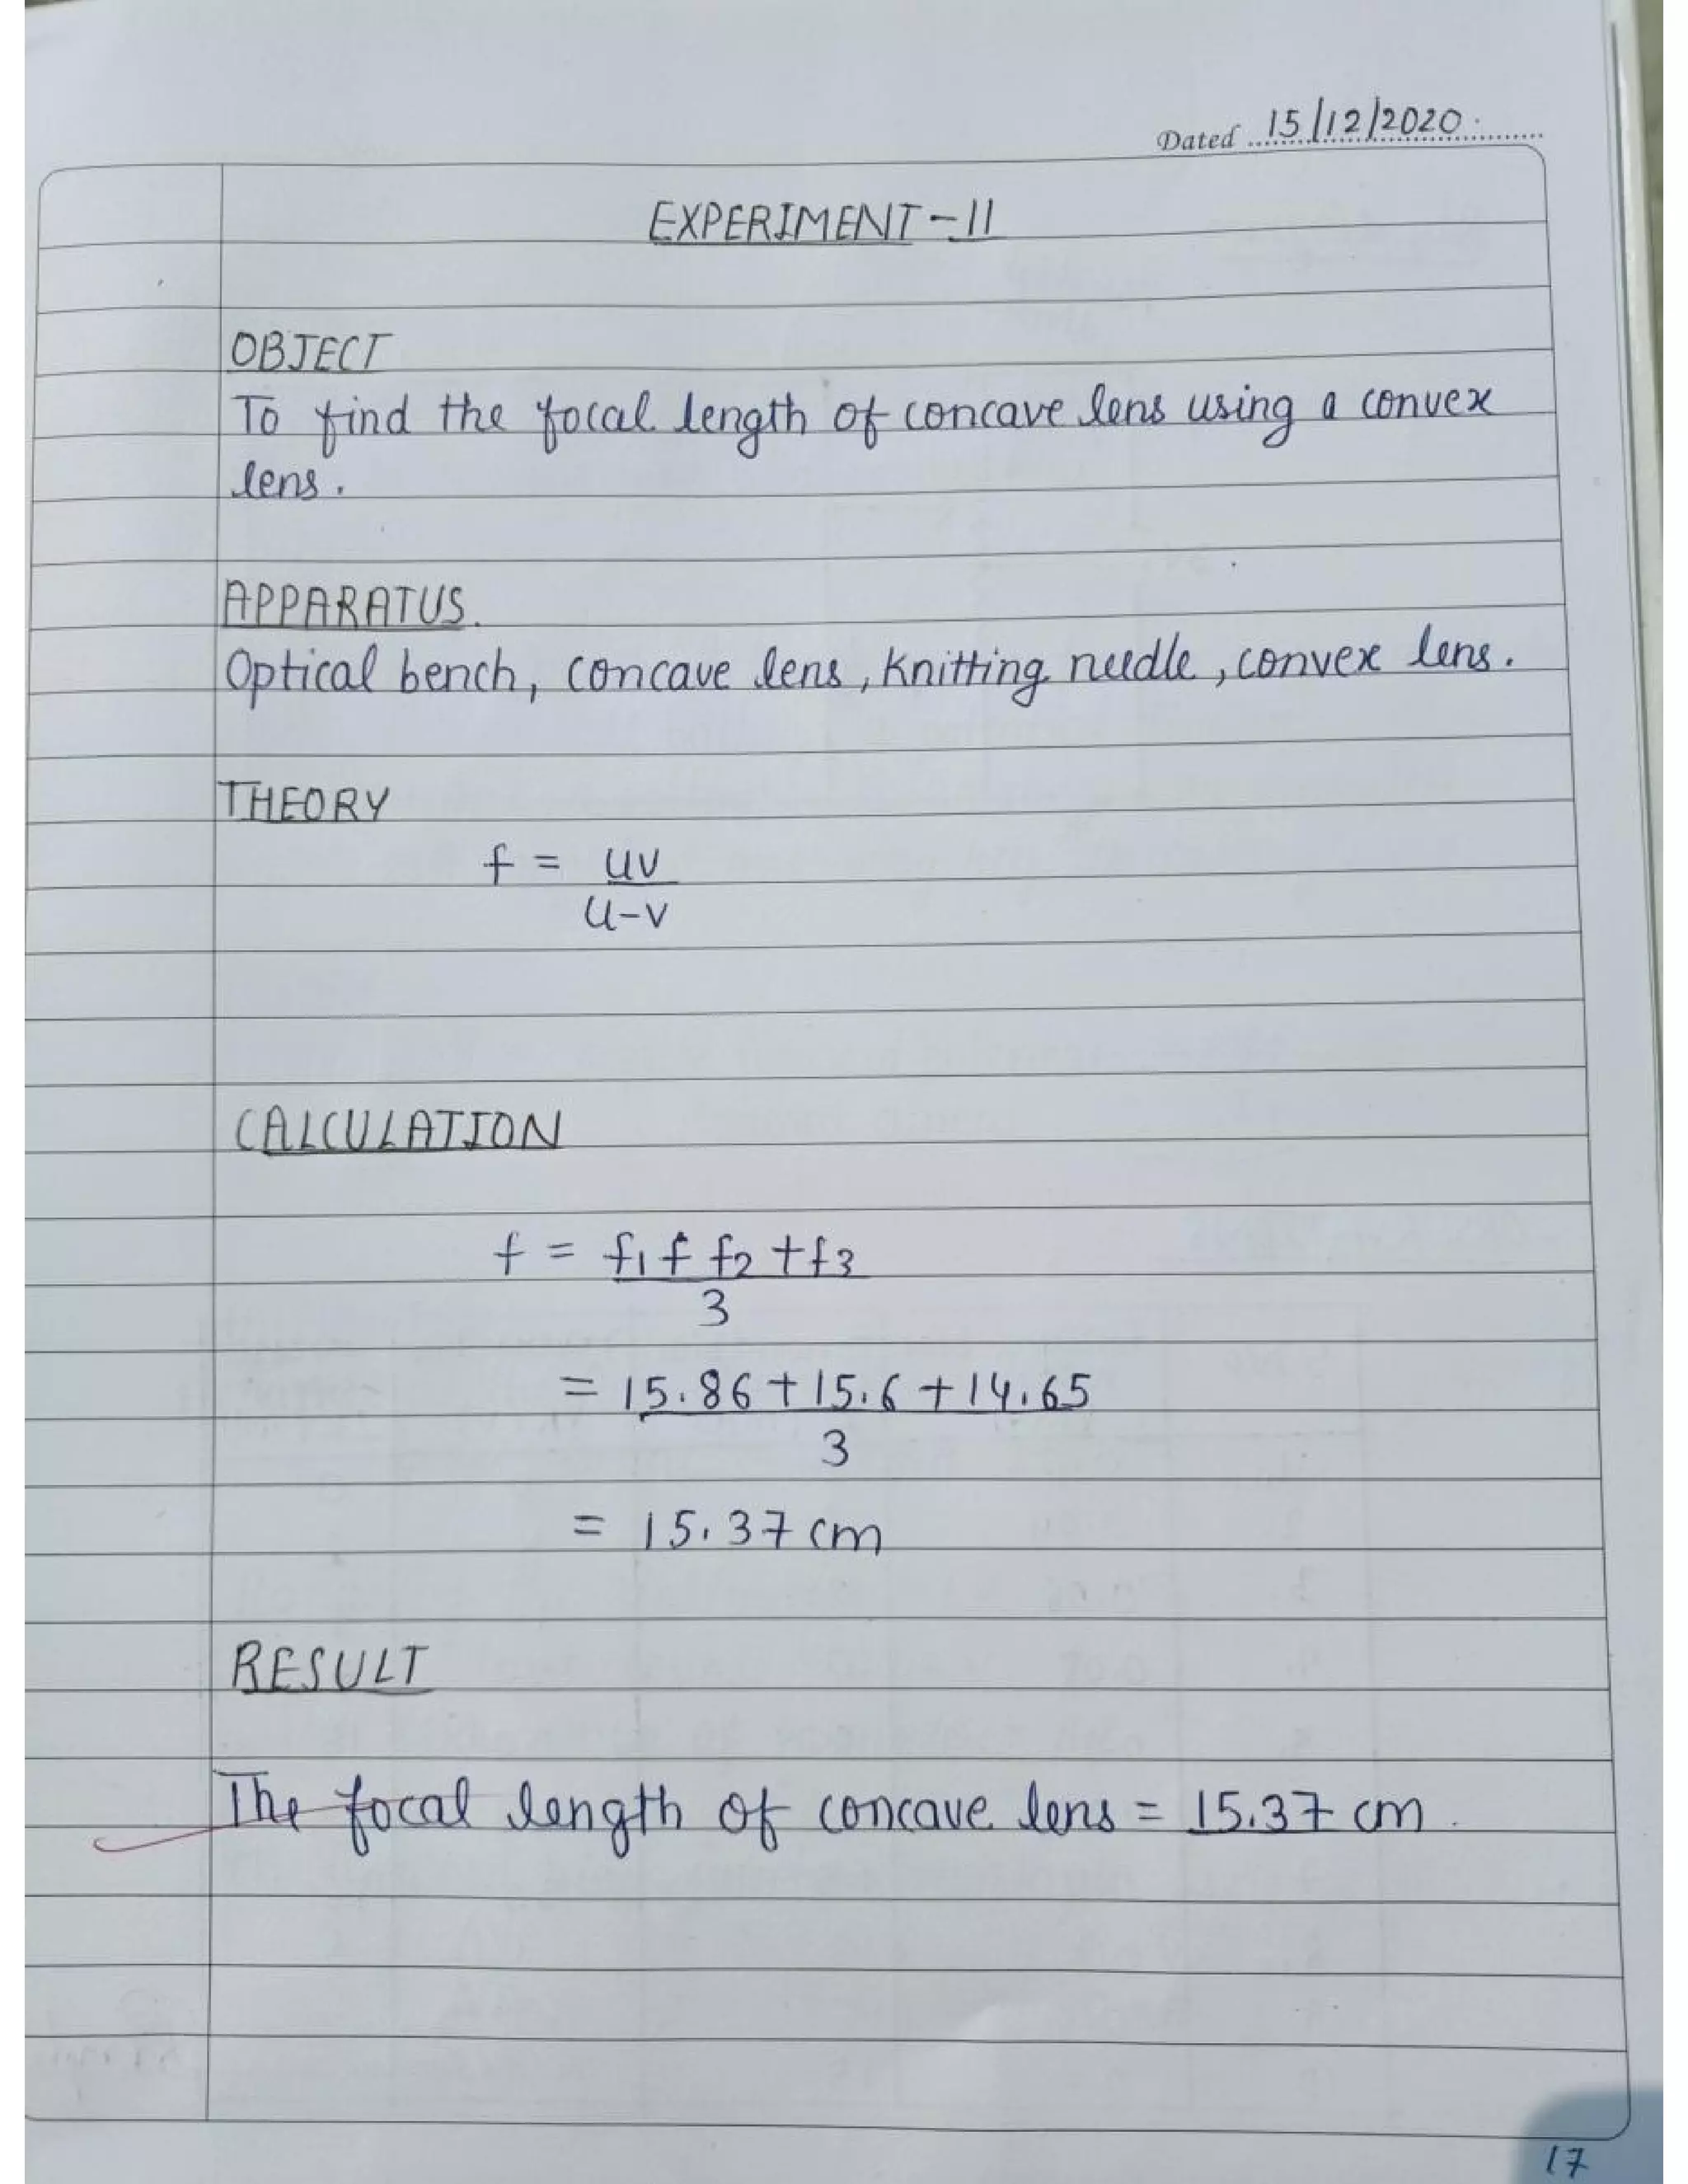 Dated 15/12/2020.
EXPERIMENT-11
OBJECT
To find the focal length of concave lens using a convex
lens.
APPARATUS.
Optical bench, concave lens, Knitting needle, convex lens.
THEORY
f = uv
u-v
CALCULATION
f = f1 + f2 + f3
3
= 15.86 + 15.6 + 14.65
3
= 15.37 cm
RESULT
The focal length of concave lens = 15.37 cm.
17